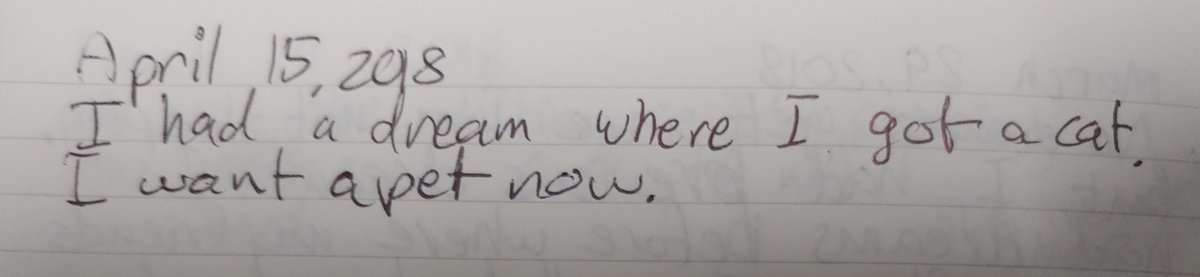 April 15, 2018
I had a dream where I got a cat.
I want a pet now.